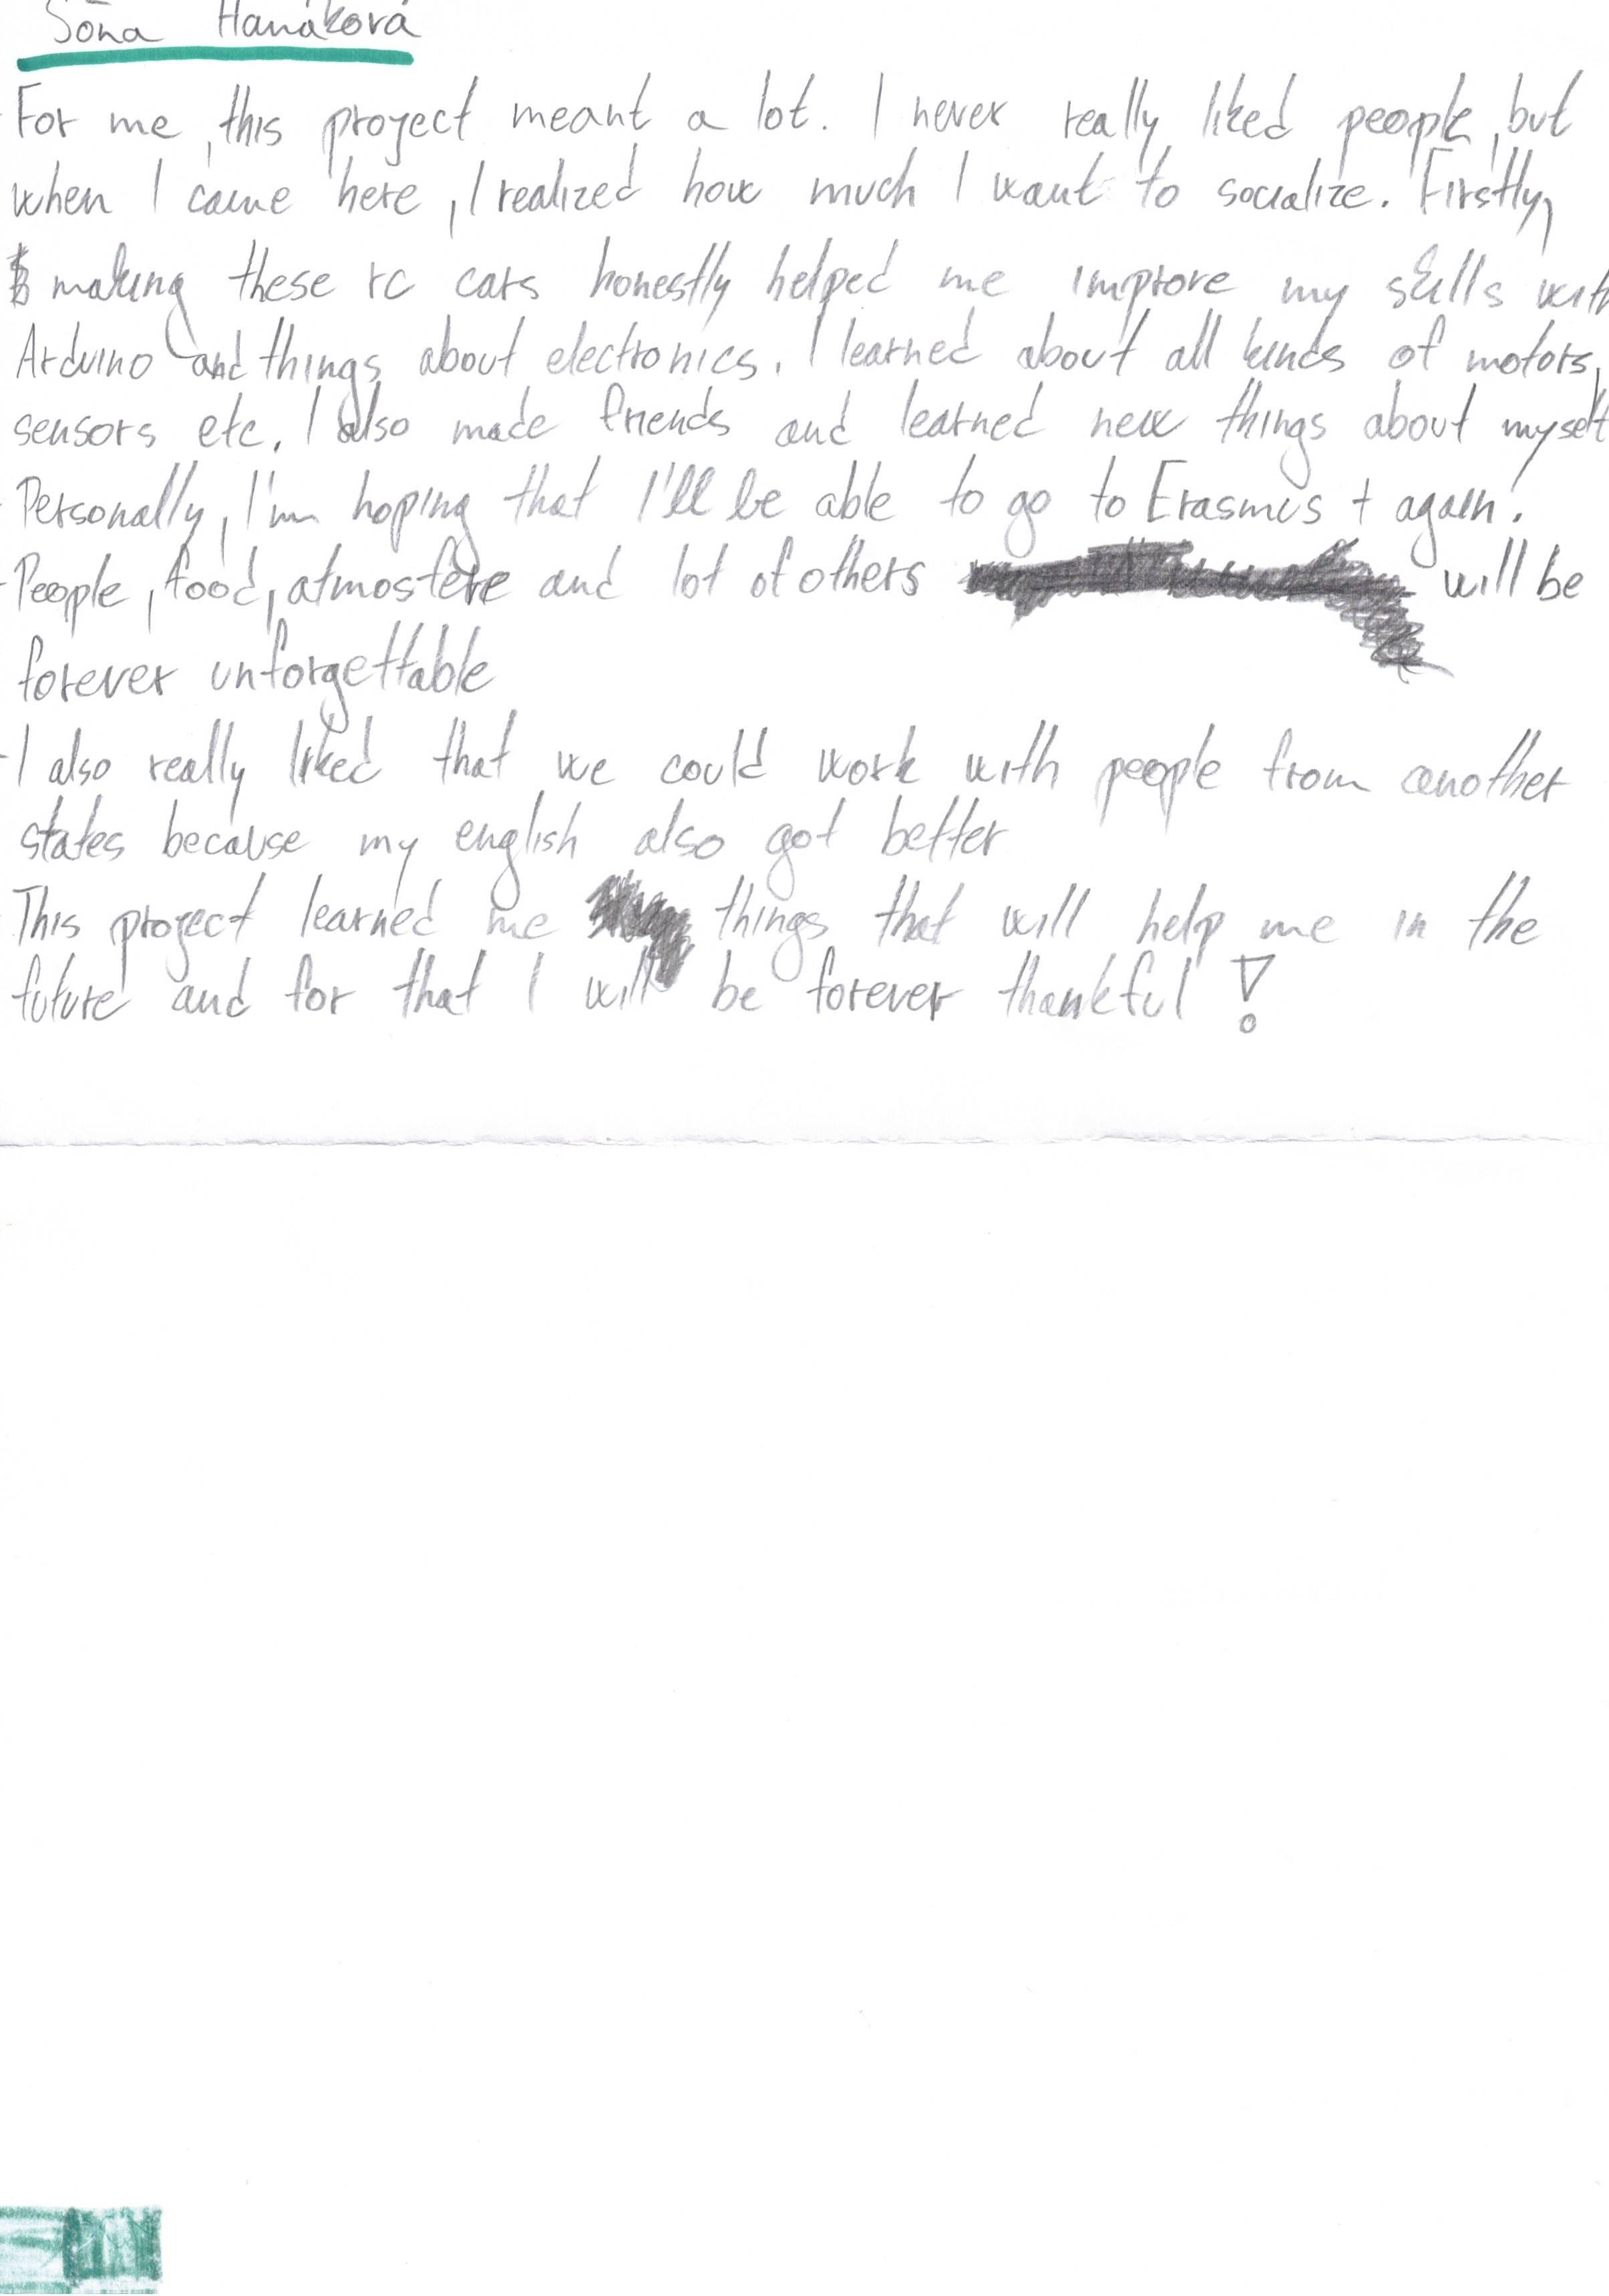 Soňa Hanáková
For me, this project meant a lot. I never really liked people, but
when I came here, I realized how much I want to socialize. Firstly,
making these rc cars honestly helped me improve my skills with
Arduino and things about electronics. I learned about all kinds of motors,
sensors etc. I also made friends and learned new things about myself
Personally, I'm hoping that I'll be able to go to Erasmus + again!
People, food, atmosfere and lot of others will be
forever unforgettable
I also really liked that we could work with people from another
states because my english also got better
This project learned me things that will help me in the
future and for that I will be forever thankful!